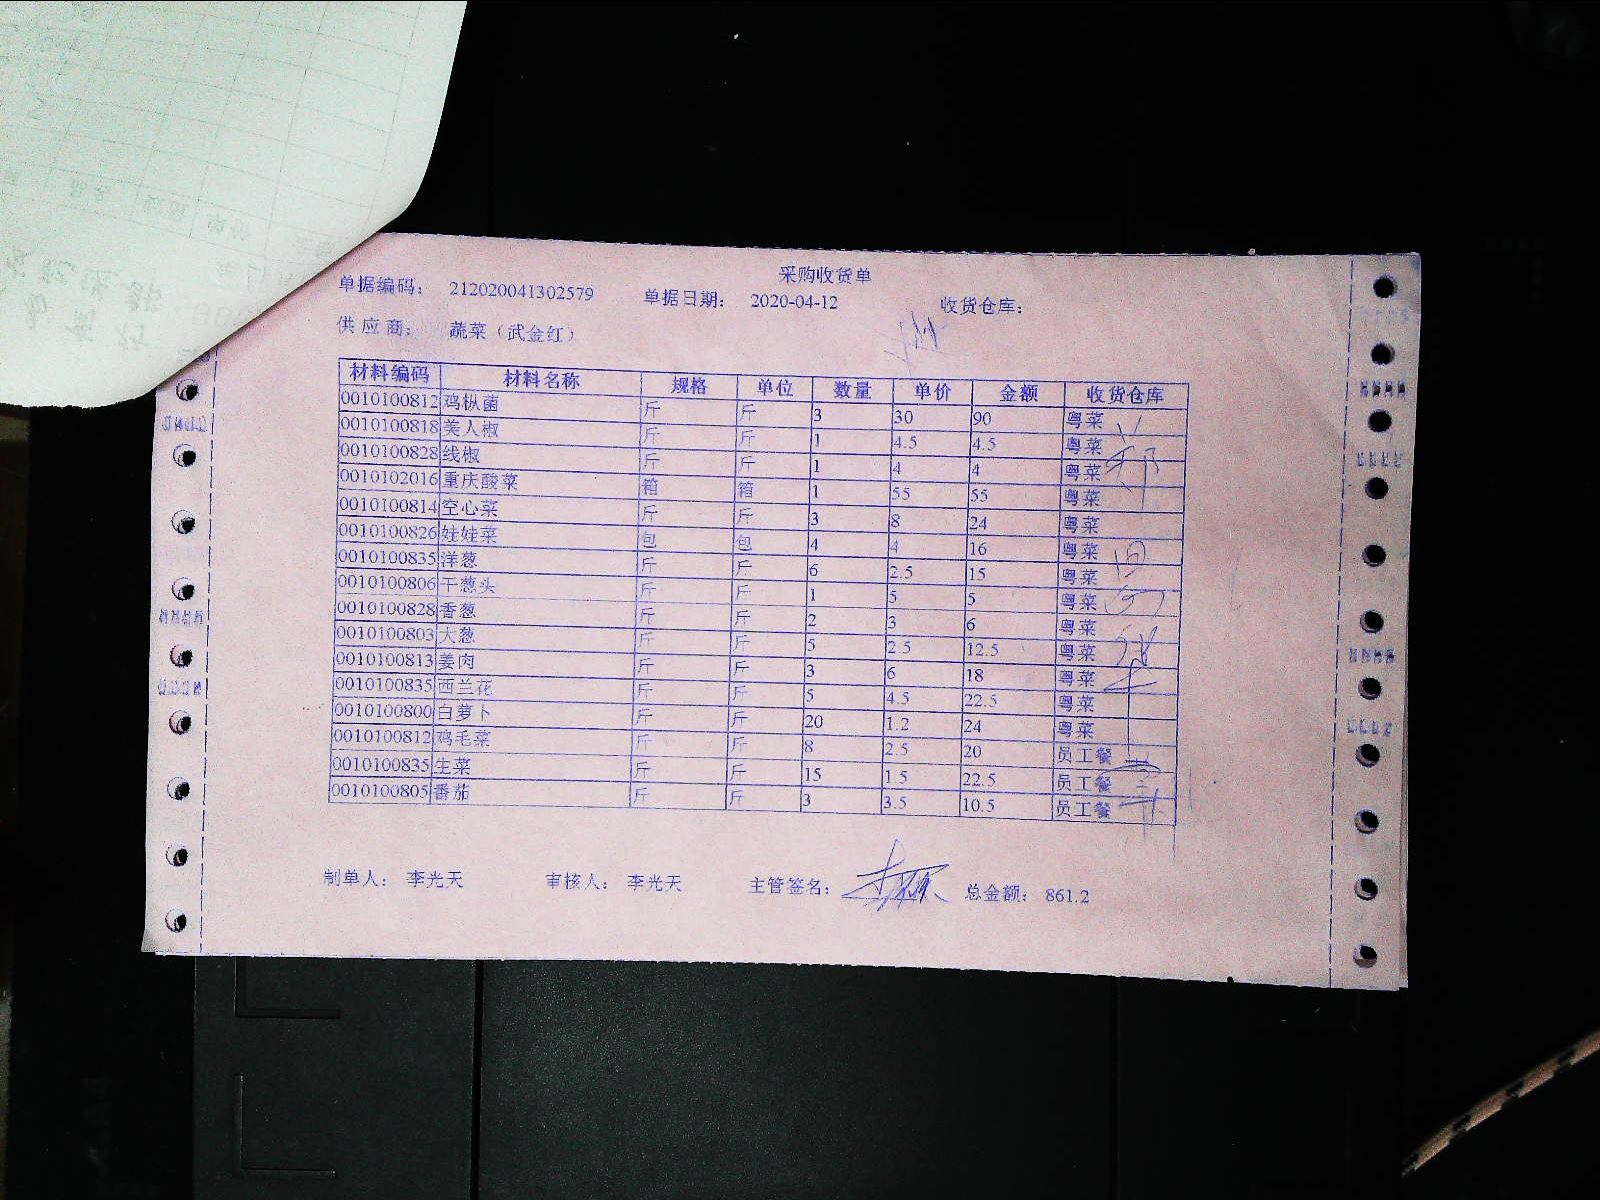 采购收货单
单据编码： 212020041302579 单据日期： 2020-04-12 收货仓库：
供应商： 蔬菜（武金红）
材料编码 材料名称 规格 单位 数量 单价 金额 收货仓库
0010100812 鸡枞菌 斤 斤 3 30 90 粤菜
0010100818 美人椒 斤 斤 1 4.5 4.5 粤菜
0010100828 线椒 斤 斤 1 4 4 粤菜
0010102016 重庆酸菜 箱 箱 1 55 55 粤菜
0010100814 空心菜 斤 斤 3 8 24 粤菜
0010100826 娃娃菜 包 包 4 4 16 粤菜
0010100835 洋葱 斤 斤 6 2.5 15 粤菜
0010100806 干葱头 斤 斤 1 5 5 粤菜
0010100828 香葱 斤 斤 2 3 6 粤菜
0010100803 大葱 斤 斤 5 2.5 12.5 粤菜
0010100813 姜肉 斤 斤 3 6 18 粤菜
0010100835 西兰花 斤 斤 5 4.5 22.5 粤菜
0010100800 白萝卜 斤 斤 20 1.2 24 粤菜
0010100812 鸡毛菜 斤 斤 8 2.5 20 员工餐
0010100835 生菜 斤 斤 15 1.5 22.5 员工餐
0010100805 番茄 斤 斤 3 3.5 10.5 员工餐
制单人： 李光天 审核人： 李光天 主管签名： 总金额： 861.2